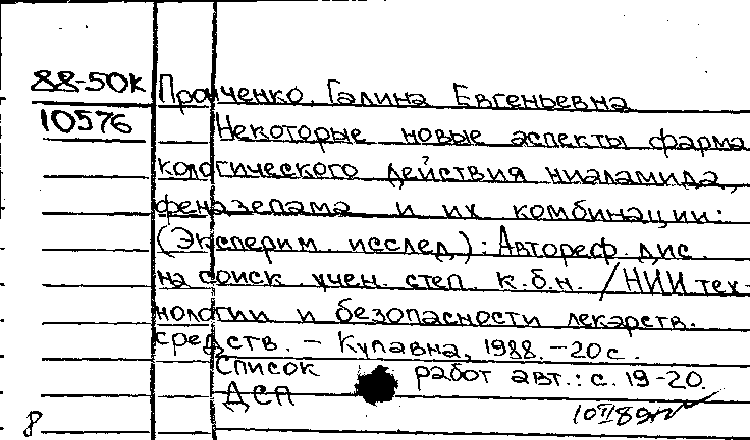 88-50К Пронченко, Галина Евгеньевна
10576 Некоторые новые аспекты фарма
кологического действия ниаламида,
феназепама и их комбинации:
(Эксперим. исслед.): Автореф. дис.
на соиск. учен. степ. к.б.н. /НИИ тех-
нологии и безопасности лекарств.
средств. - Купавна, 1988. - 20 с.
Список работ авт.: с. 19-20.
ДСП
8